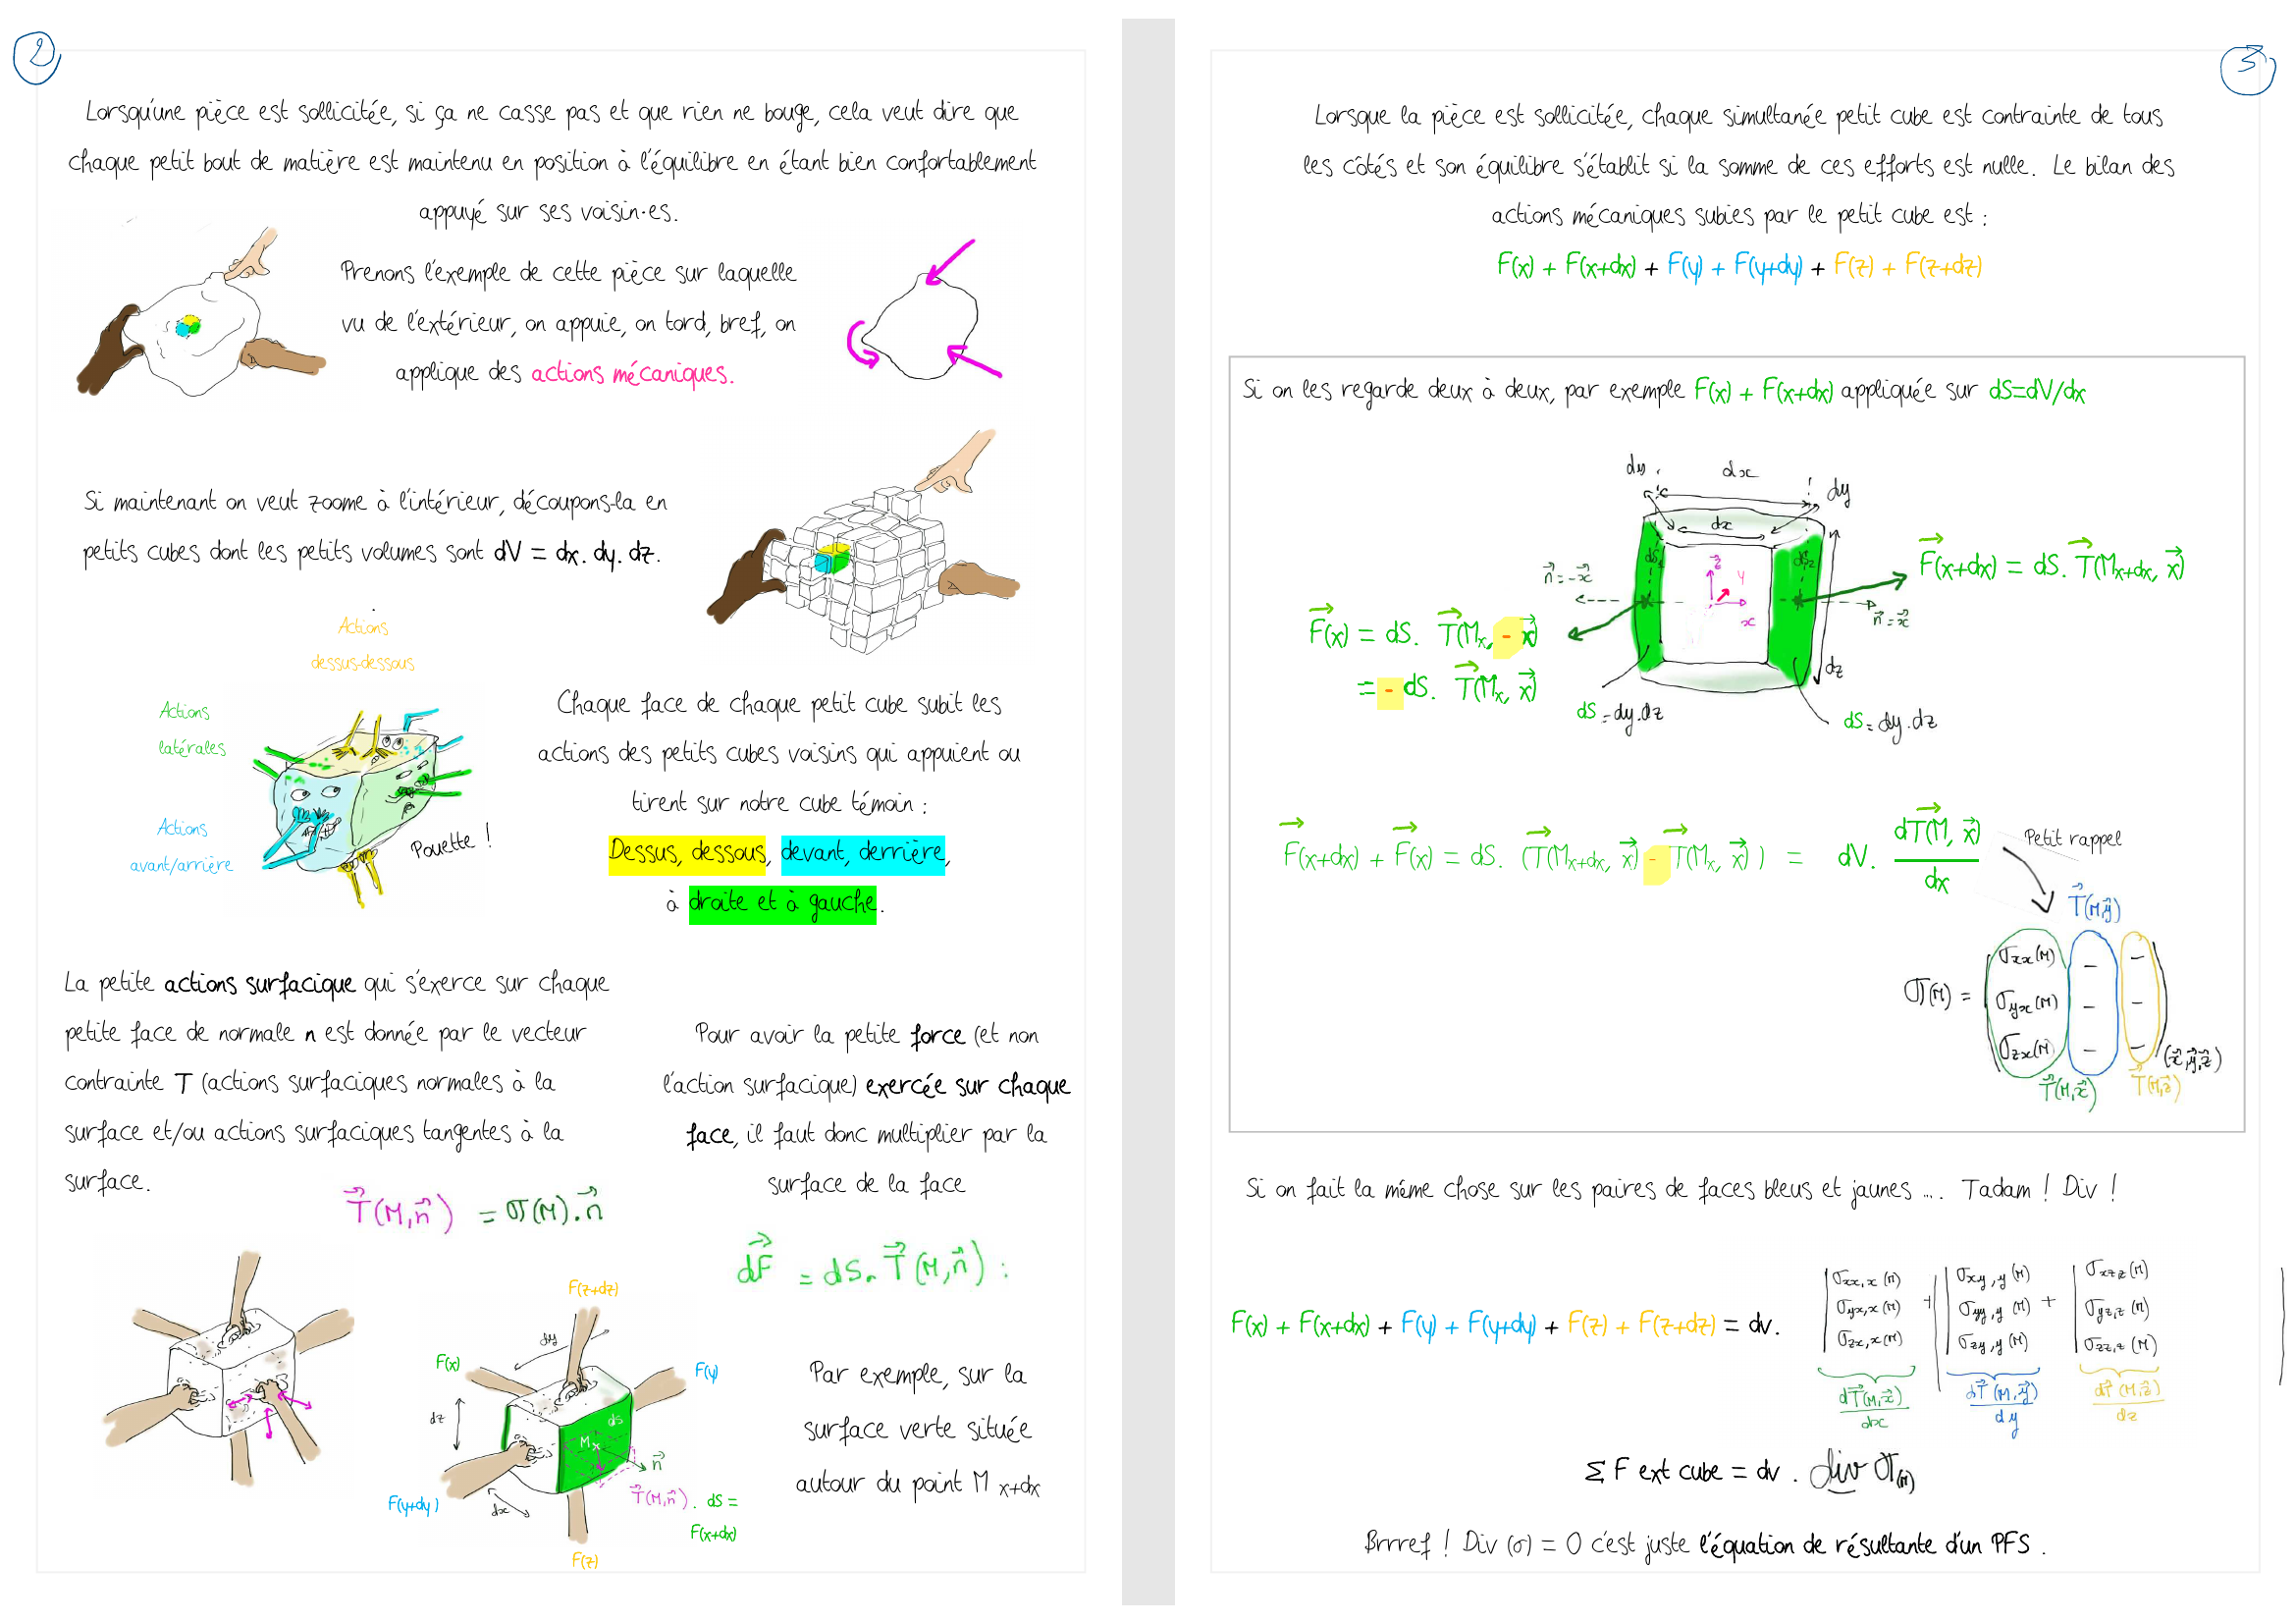 2
Lorsqu'une pièce est sollicitée, si ça ne casse pas et que rien ne bouge, cela veut dire que
chaque petit bout de matière est maintenu en position à l'équilibre en étant bien confortablement
appuyé sur ses voisin·es.
Prenons l'exemple de cette pièce sur laquelle
vu de l'extérieur, on appuie, on tord, bref, on
applique des actions mécaniques.
Si maintenant on veut zoome à l'intérieur, découpons-la en
petits cubes dont les petits volumes sont dV = dx. dy. dz.
Actions
dessus-dessous
Actions
latérales
Actions
avant/arrière
Pouette !
Chaque face de chaque petit cube subit les
actions des petits cubes voisins qui appuient ou
tirent sur notre cube témoin :
Dessus, dessous, devant, derrière,
à droite et à gauche.
La petite actions surfacique qui s'exerce sur chaque
petite face de normale n est donnée par le vecteur
contrainte T (actions surfaciques normales à la
surface et/ou actions surfaciques tangentes à la
surface.
T⃗(M,n⃗) = σ(M).n⃗
Pour avoir la petite force (et non
l'action surfacique) exercée sur chaque
face, il faut donc multiplier par la
surface de la face
dF⃗ = dS. T⃗(M,n⃗) :
Par exemple, sur la
surface verte située
autour du point M x+dx
F(z+dz)
dy
F(x)
F(y)
dz
dS
Mx
n⃗
T⃗(M,n⃗). dS =
F(x+dx)
F(y+dy)
dx
F(z)
3
Lorsque la pièce est sollicitée, chaque simultanée petit cube est contrainte de tous
les côtés et son équilibre s'établit si la somme de ces efforts est nulle. Le bilan des
actions mécaniques subies par le petit cube est :
F(x) + F(x+dx) + F(y) + F(y+dy) + F(z) + F(z+dz)
Si on les regarde deux à deux, par exemple F(x) + F(x+dx) appliquée sur dS=dV/dx
dy
dx
dy
dx
dS1
dS2
z⃗
y
x
n⃗=-x⃗
n⃗=x⃗
dz
F⃗(x+dx) = dS. T⃗(Mx+dx, x⃗)
F⃗(x) = dS. T⃗(Mx, - x⃗)
= - dS. T⃗(Mx, x⃗)
dS=dy.dz
dS=dy.dz
F⃗(x+dx) + F⃗(x) = dS. (T⃗(Mx+dx, x⃗) - T⃗(Mx, x⃗) ) = dV. dT⃗(M, x⃗)
dx
Petit rappel
T⃗(M,y⃗)
σ(M) =
σxx(M) - -
σyx(M) - -
σzx(M) - -
(x⃗,y⃗,z⃗)
T⃗(M,x⃗)
T⃗(M,z⃗)
Si on fait la même chose sur les paires de faces bleus et jaunes .... Tadam ! Div !
F(x) + F(x+dx) + F(y) + F(y+dy) + F(z) + F(z+dz) = dv.
σxx,x (M) + σxy,y (M) + σxz,z (M)
σyx,x (M) σyy,y (M) σyz,z (M)
σzx,x (M) σzy,y (M) σzz,z (M)
dT⃗(M,x⃗) dT⃗(M,y⃗) dT⃗(M,z⃗)
dx dy dz
Σ F ext cube = dv . div σ(M)
Brrref ! Div (σ) = 0 c'est juste l'équation de résultante d'un PFS .